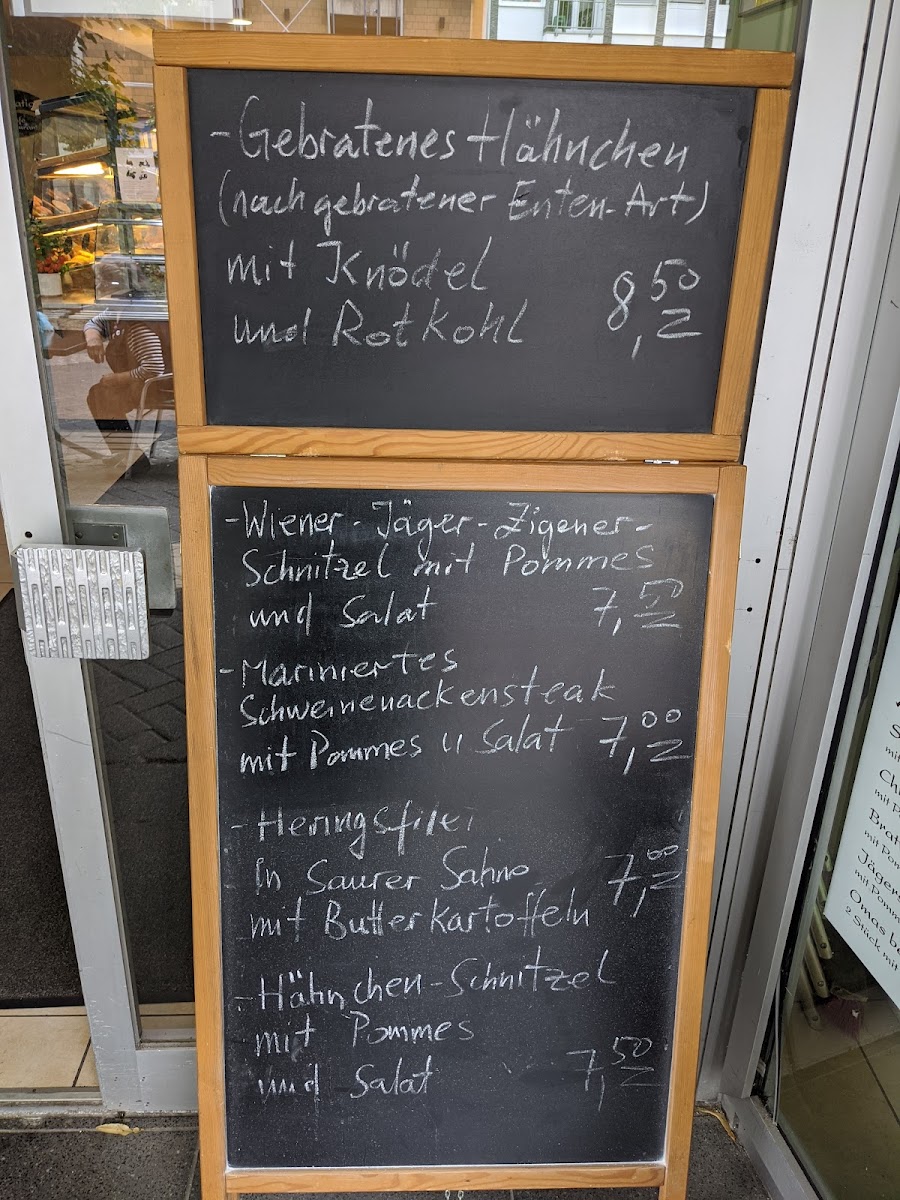 - Gebratenes Hähnchen
(nach gebratener Enten-Art)
mit Knödel
und Rotkohl 8,50
- Wiener - Jäger - Zigener -
Schnitzel mit Pommes
und Salat 7,50
- Mariniertes
Schweinenackensteak
mit Pommes u Salat 7,00
- Heringsfilet
In Saurer Sahne 7,00
mit Butterkartoffeln
- Hähnchen-Schnitzel
mit Pommes
und Salat 7,50
mit
mit
mit Pom
Jäger
mit Pomm
Omas
2 Stück mit